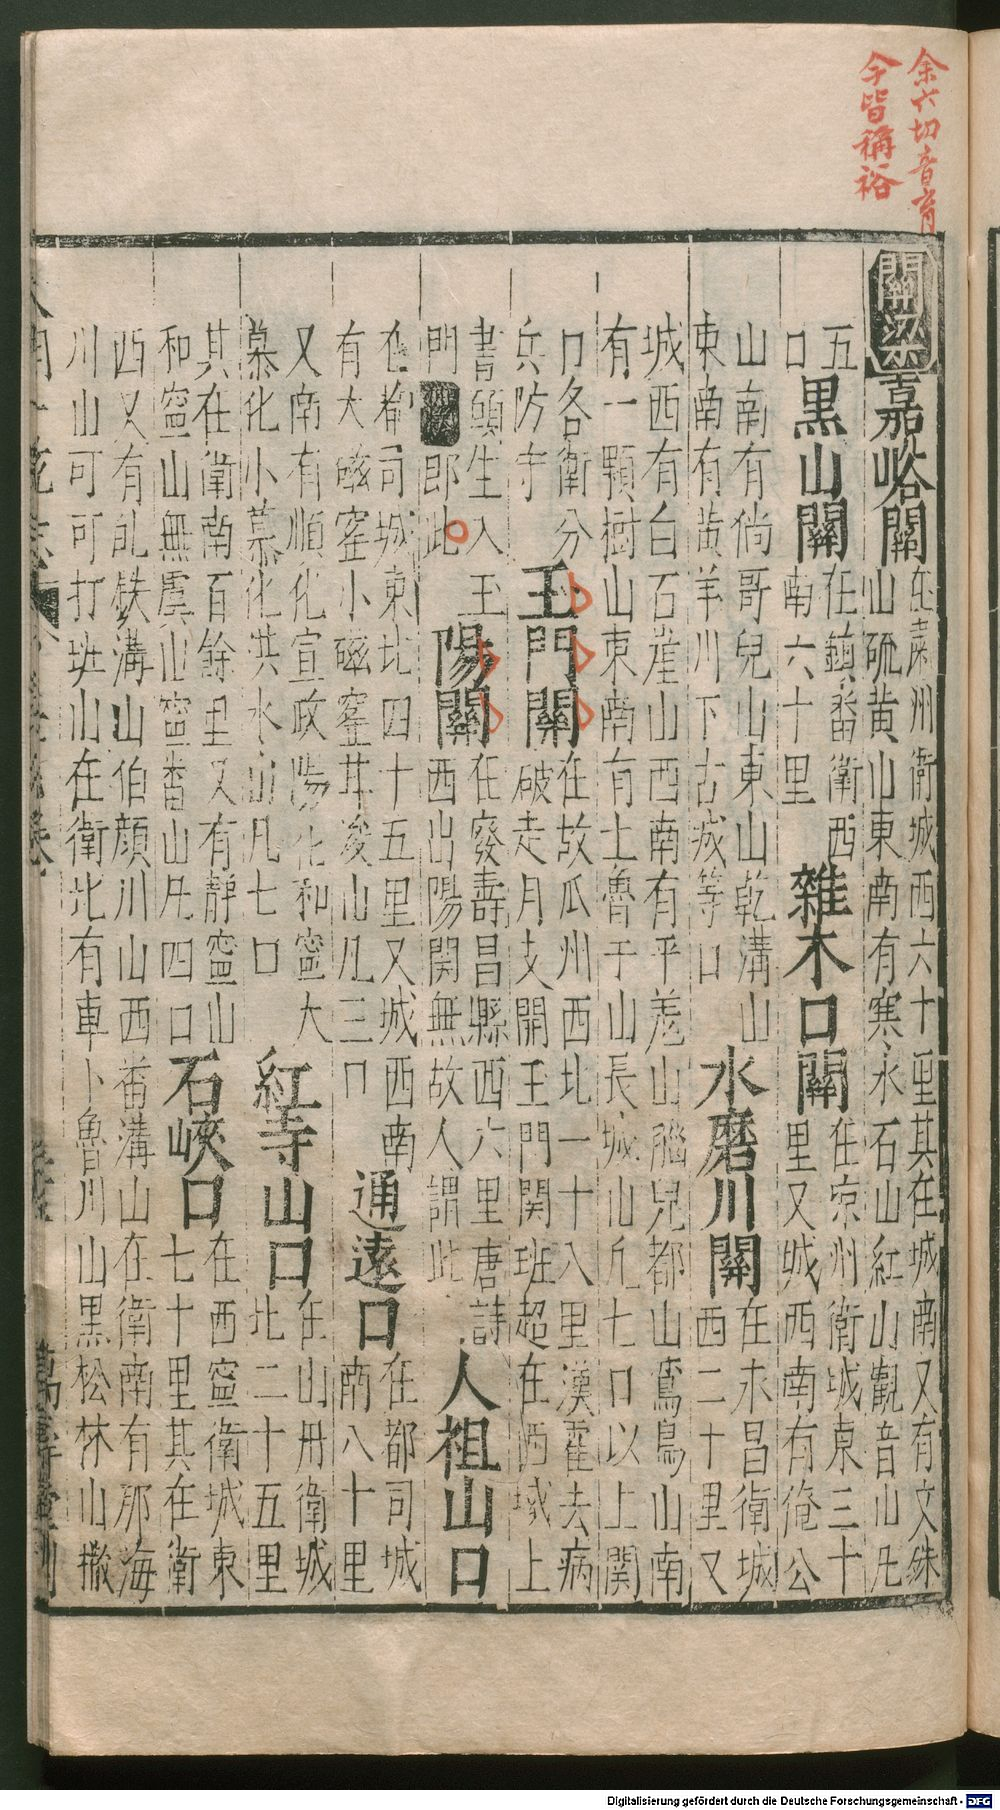 余六切音育
今皆稱裕
關梁
嘉峪關
在肅州衛城西六十里其在城南又有文銖
山硫黃山東南有寒水石山紅山觀音山凡
五
口
黑山關
在鎮番衛西
南六十里
雜木口關
在凉州衛城東三十
里又城西南有俺公
山南有倘哥兒山東山乾溝山
東南有黃羊川下古城等口
水磨川關
在永昌衛城
西二十里又
城西有白石崖山西南有平羌山腦兒都山鸞鳥山南
有一顆樹山東南有土魯于山長城山凡七口以上関
口各衛分
兵防守
玉門關
在故瓜州西北一十八里漢霍去病
破走月支開玉門関班超在西域上
書願生入玉
門即此
陽關
在廢壽昌縣西六里唐詩
西出陽関無故人謂此
人祖山口
在都司城東北四十五里又城西南
有大磁窑小磁窑井凌山凡三口
通遠口
在都司城
南八十里
又南有順化宣政陽化和寧大
慕化小慕化洪水山凡七口
紅寺山口
在山丹衛城
北二十五里
其在衛南百餘里又有靜寧山
和寧山無虞山寧番山凡四口
石峽口
在西寧衛城東
七十里其在衛
西又有乩铁溝山伯顔川山西番溝山在衛南有那海
川山可可打班山在衛北有車卜魯川山黑松林山撒
Digitalisierung gefördert durch die Deutsche Forschungsgemeinschaft - DFG